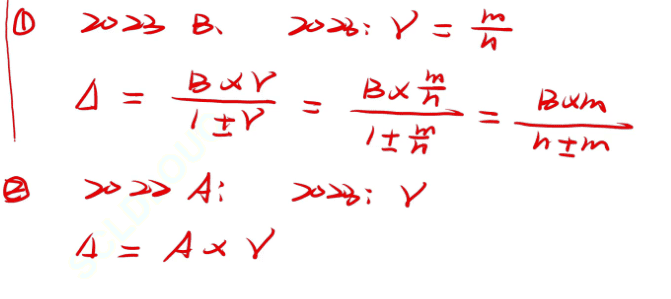 ① 2023 B、 2023: r = m/n
Δ = (B×r)/(1±r) = (B×m/n)/(1±m/n) = (B×m)/(n±m)
② 2022 A: 2023: r
Δ = A × r